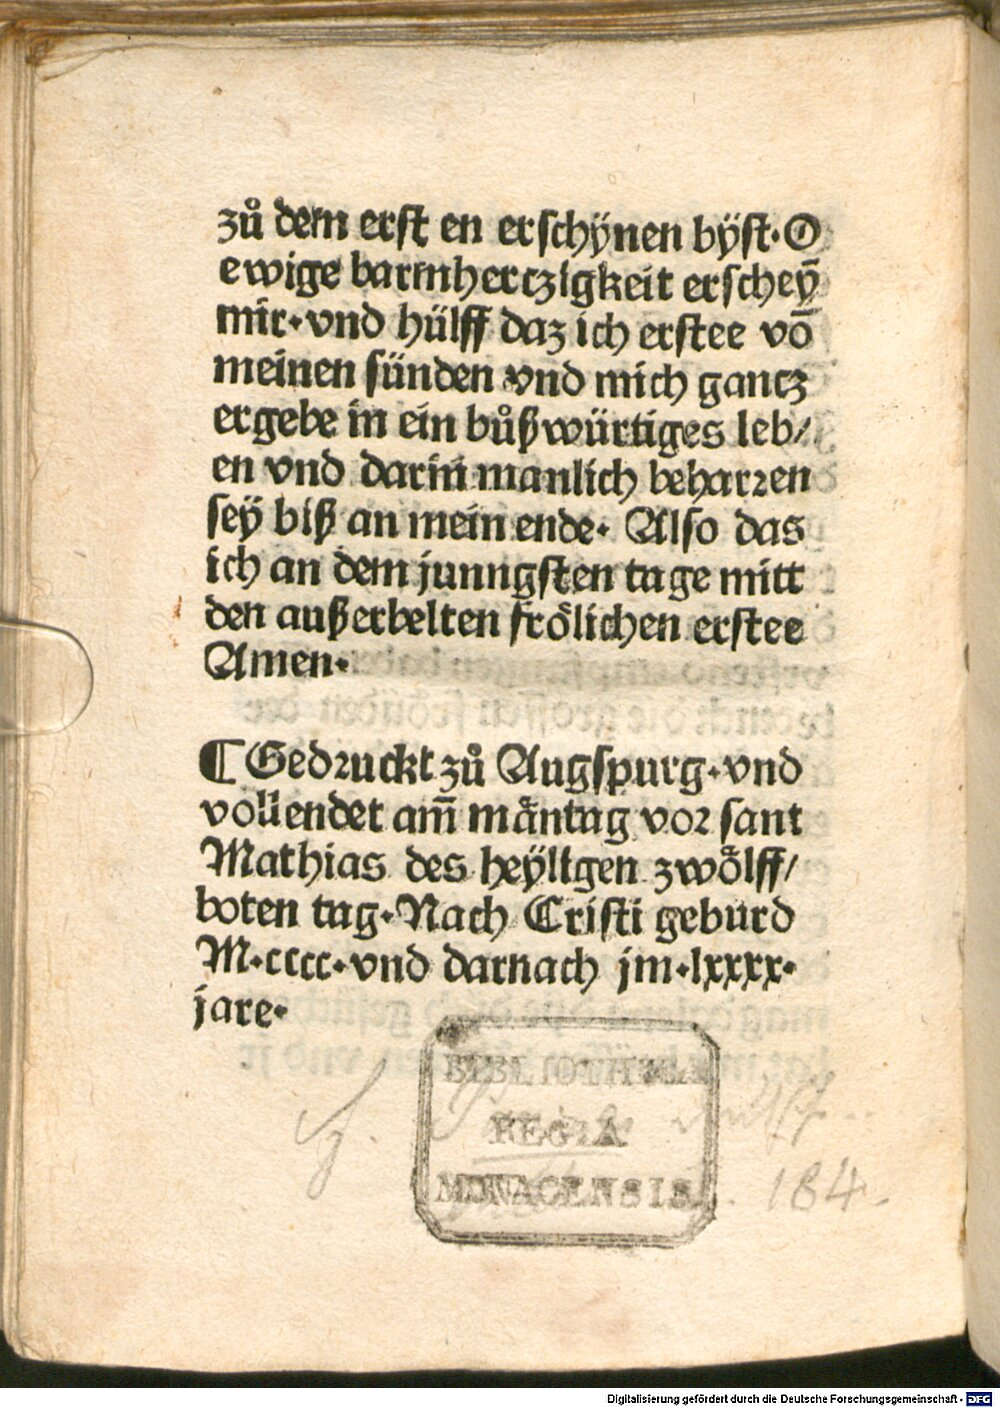 zů dem erst en erschÿnen bÿst · O
ewige barmhertzigkeit erscheȳ
mir · vnd hülff daz ich erstee vō
meinen sünden vnd mich gantz
ergebe in ein bůßwürtiges leb/
en vnd darin manlich beharren
seÿ biß an mein ende · Also das
ich an dem junngsten tage mitt
den außerbelten frölichen erstee
Amen ·
¶ Gedruckt zů Augspurg · vnd
vollendet am̄ mäntag vor sant
Mathias des heÿligen zwölff/
boten tag · Nach Cristi geburd
M · cccc · vnd darnach jm · lxxxx ·
jare ·
BIBLIOTHECA
REGIA
MONACENSIS
184.
Digitalisierung gefördert durch die Deutsche Forschungsgemeinschaft - DFG